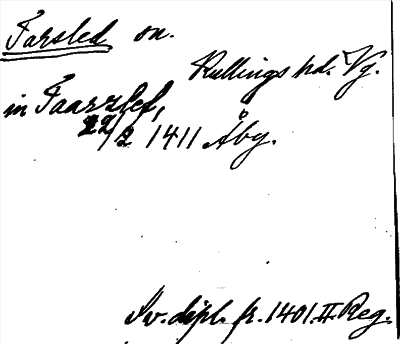 Farsled sn.
Kullings hd. Vg.
in Faarzlef,
22/2 1411 Åby.
Sv. dipl. fr. 1401. II. Reg.